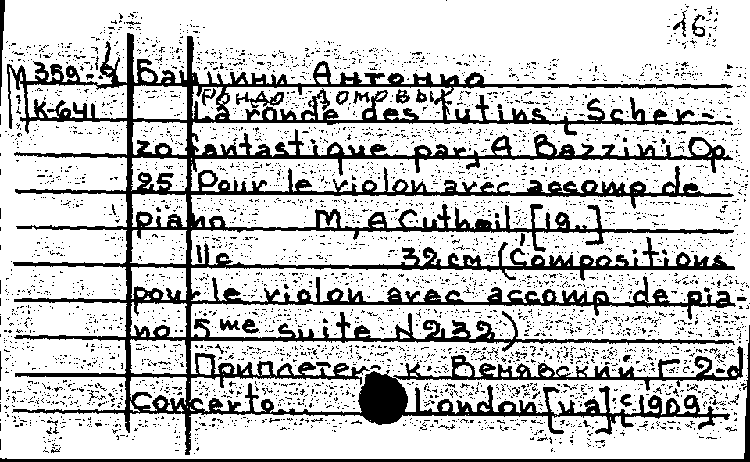 16
М 359-9 Баццини, Антонио
Рондо домовых
К-641 La ronde des lutins, Scher-
zo fantastique par A Bazzini Op
25 Pour le violon avec accomp de
piano M, A Gutheil, [19..]
11c. 32 cm (Compositions
pour le violon avec accomp de pia-
no 5me suite N 232)
Приплетена к: Венявский, Г. 2-d
Concerto... London [u.a], c 1909,